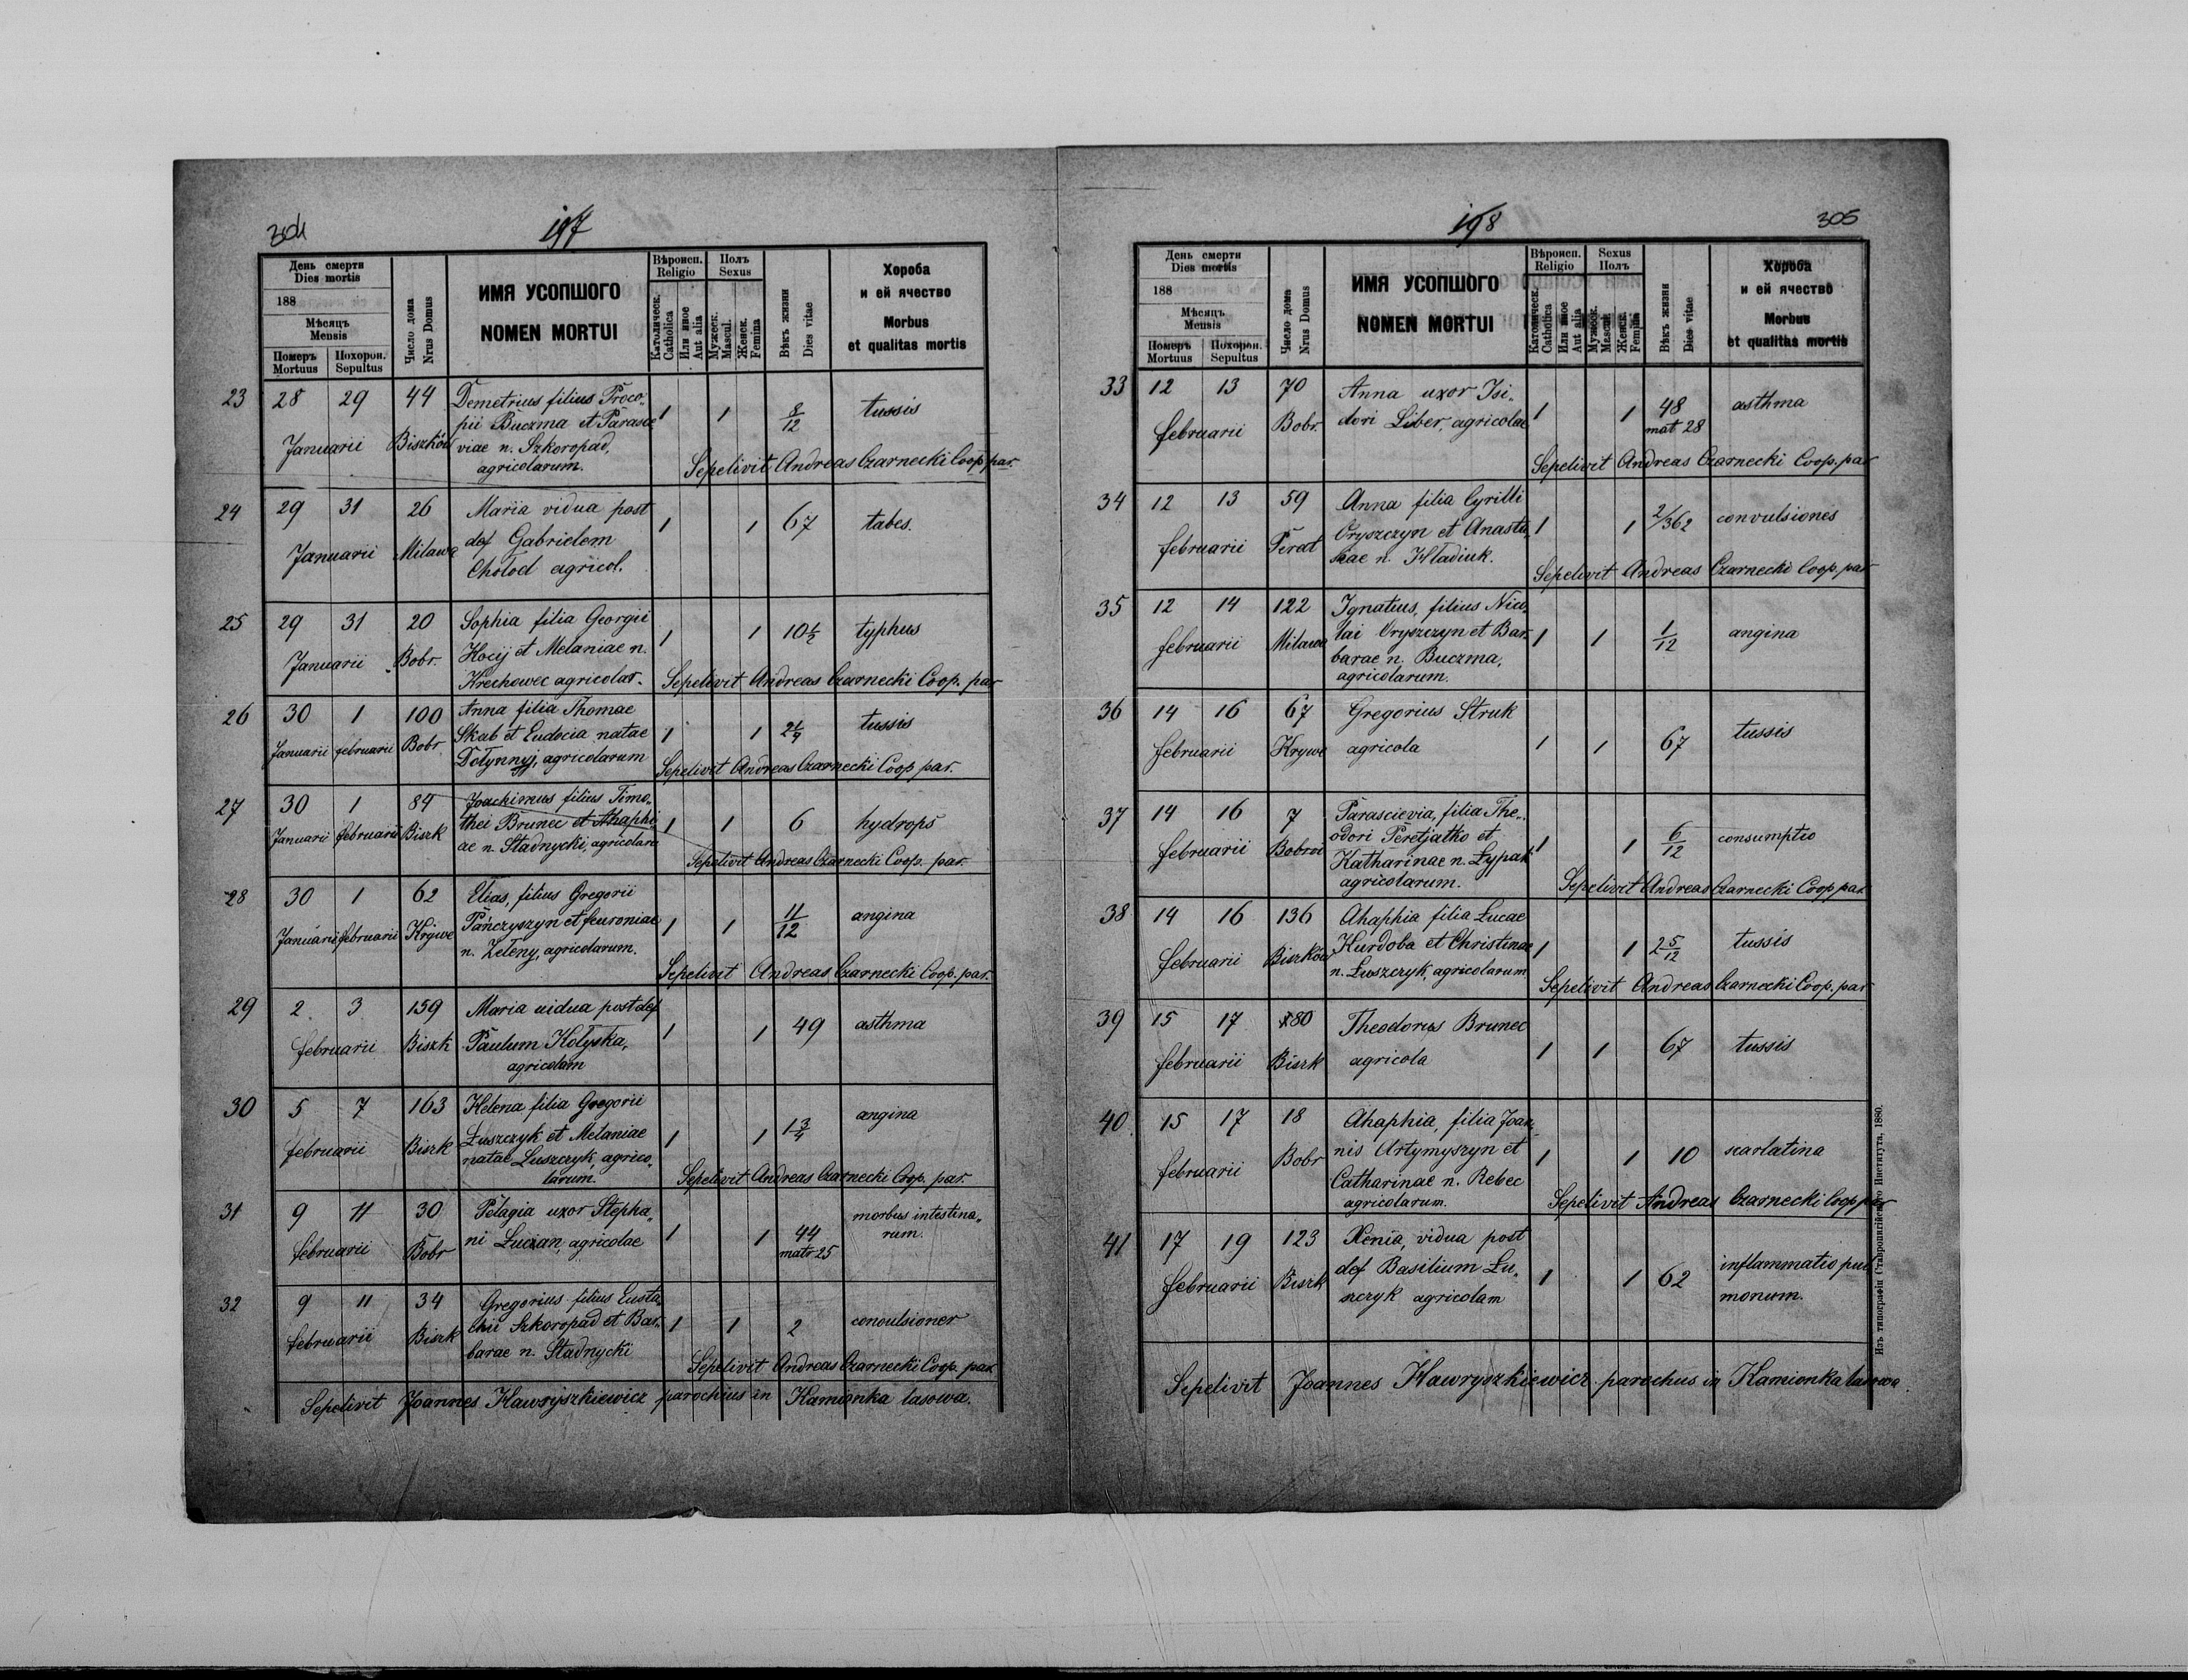 304
197
День смерти
Dies mortis
188
Мѣсяцъ
Mensis
Померъ
Mortuus
Похорон.
Sepultus
Число дома
Nrus Domus
ИМЯ УСОПШОГО
NOMEN MORTUI
Вѣроисп.
Religio
Католическ.
Catholica
Или иное
Aut alia
Полъ
Sexus
Мужеск.
Mascul.
Женск.
Femina
Вѣкъ жизни
Dies vitae
Хороба
и ей ячество
Morbus
et qualitas mortis
23 28 29 44 Demetrius filius Proco„
Januarii Biszków pii Buczma et Parasce 1 1 8/12 tussis
viae n. Szkoropad,
agricolarum. Sepelivit Andreas Czarnecki Coop par.
24 29 31 26 Maria vidua post
Januarii Milawa def Gabrielem 1 1 67 tabes.
Chołod agricol.
25 29 31 20 Sophia filia Georgii
Januarii Bobr. Kocij et Melaniae n. 1 1 10½ typhus
Krechowec agricolar. Sepelivit Andreas Czarnecki Coop. par
26 30 1 100 Anna filia Thomae
Januarii februarii Bobr Skab et Eudocia natae 1 1 tussis
Dołynnyj, agricolarum Sepelivit Andreas Czarnecki Coop par.
27 30 1 84 Joachimus filius Timo„
Januarii februarii Biszk thei Brunec et Ahaphi 1 1 6 hydrops
ae n. Stadnycki, agricolaru Sepelivit Andreas Czarnecki Coop. par.
28 30 1 62 Elias, filius Gregorii
Januarii februarii Krywe Pańczyszyn et feuroniae 1 1 11/12 angina
n. Zeleny, agricolarum. Sepelivit Andreas Czarnecki Coop. par.
29 2 3 159 Maria uidua post def
februarii Biszk Paulum Kołyska, 1 1 49 asthma
agricolam
30 5 7 163 Helena filia Gregorii
februarii Biszk Łuszczyk et Melaniae 1 1 1¾ angina
natae Łuszczyk, agrico„
larum. Sepelivit Andreas Czarnecki Coop. par.
31 9 11 30 Pelagia uxor Stepha„ morbus intestina„
februarii Bobr ni Łuczan, agricolae 1 1 44 rum.
matr 25
32 9 11 34 Gregorius filius Eusta„
februarii Biszk chii Szkoropad et Bar„ 1 1 2 convulsiones
barae n. Stadnycki Sepelivit Andreas Czarnecki Coop. par
Sepelivit Joannes Hawryszkiewicz parochius in Kamionka lasowa.
198
305
День смерти
Dies mortis
188
Мѣсяцъ
Mensis
Померъ
Mortuus
Похорон.
Sepultus
Число дома
Nrus Domus
ИМЯ УСОПШОГО
NOMEN MORTUI
Вѣроисп.
Religio
Католическ.
Catholica
Или иное
Aut alia
Sexus
Полъ
Мужеск.
Mascul.
Женск.
Femina
Вѣкъ жизни
Dies vitae
Хороба
и ей ячество
Morbus
et qualitas mortis
33 12 13 70 Anna uxor Isi„
februarii Bobr. dori Liber, agricolae 1 1 48 asthma
mat 28
Sepelivit Andreas Czarnecki Coop. par
34 12 13 59 Anna filia Cyrilli
februarii Perat Oryszczyn et Anasta„ 1 1 2/362 convulsiones
siae n. Hładiuk. Sepelivit Andreas Czarnecki Coop. par
35 12 14 122 Ignatius, filius Nico„
februarii Milawa lai Oryszczyn et Bar 1 1 1/12 angina
barae n. Buczma,
agricolarum.
36 14 16 67 Gregorius Struk
februarii Krywe agricola 1 1 67 tussis
37 14 16 7 Parascievia, filia The„
februarii Bobroi odori Peretjatko et 1 1 6/12 consumptio
Katharinae n. Łypak
agricolarum. Sepelivit Andreas Czarnecki Coop par
38 14 16 136 Ahaphia filia Łucae
februarii Biszków Kurdoba et Christinae 1 1 2 5/12 tussis
n. Łuszczyk, agricolarum Sepelivit Andreas Czarnecki Coop. par
39 15 17 80 Theodorus Brunec
februarii Biszk agricola 1 1 67 tussis
40 15 17 18 Ahaphia, filia Joan„
februarii Bobr nis Artymyszyn et 1 1 10 scarlatina
Catharinae n. Rebec
agricolarum. Sepelivit Andreas Czarnecki Coop par
41 17 19 123 Xenia, vidua post
februarii Biszk def Basilium Łu„ 1 1 62 inflammatio pul
szczyk agricolam monum.
Sepelivit Joannes Hawryszkiewicz parochus in Kamionka lasowa.
Изъ типографіи Ставропигійского Института, 1880.